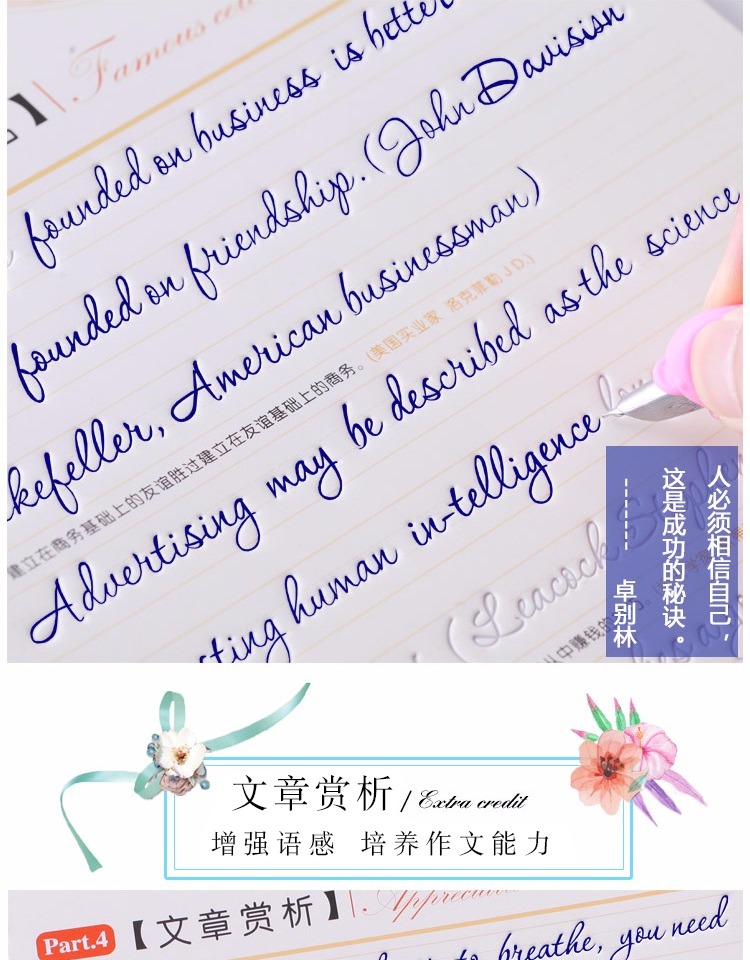 】 Famous
founded on business is better
founded on friendship. (John Davision
kefeller, American businessman)
建立在商务基础上的友谊胜过建立在友谊基础上的商务。(美国实业家 洛克菲勒 J D.)
Advertising may be described as the science
sting human in-telligence
(Leacock Stephen
从中赚钱的
人必须相信自己，
这是成功的秘诀。
------- 卓别林
文章赏析 / Extra credit
增强语感 培养作文能力
Part.4 【文章赏析】 Appreciation
to breathe, you need